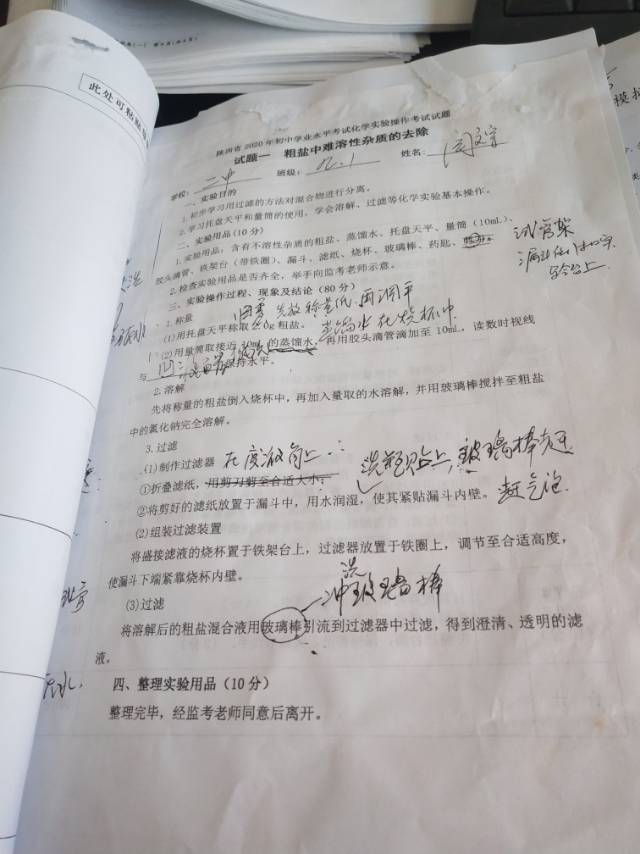 此处可粘贴
陕西省2020年初中学业水平考试化学实验操作考试试题
试题一 粗盐中难溶性杂质的去除
学校：二中 班级：九.1 姓名：
一、实验目的
1.初步学习用过滤的方法对混合物进行分离。
2.学习托盘天平和量筒的使用，学会溶解、过滤等化学实验基本操作。
二、实验用品(10分)
1.实验用品：含有不溶性杂质的粗盐、蒸馏水、托盘天平、量筒（10mL）、
胶头滴管、铁架台（带铁圈）、漏斗、滤纸、烧杯、玻璃棒、药匙、
试管架
2.检查实验用品是否齐全，举手向监考老师示意。
三、实验操作过程、现象及结论(80分)
1.称量
先放称量纸 再调平
(1)用托盘天平称取 g粗盐。
(2)用量筒取接近10mL的蒸馏水，再用胶头滴管滴加至10mL，读数时视线
与 保持水平。
2.溶解
先将称量的粗盐倒入烧杯中，再加入量取的水溶解，并用玻璃棒搅拌至粗盐
中的氯化钠完全溶解。
3.过滤
(1)制作过滤器
①折叠滤纸，用剪刀剪至合适大小。
②将剪好的滤纸放置于漏斗中，用水润湿，使其紧贴漏斗内壁。 赶气泡
(2)组装过滤装置
将盛接滤液的烧杯置于铁架台上，过滤器放置于铁圈上，调节至合适高度，
使漏斗下端紧靠烧杯内壁。
(3)过滤
洗
冲玻璃棒
将溶解后的粗盐混合液用玻璃棒引流到过滤器中过滤，得到澄清、透明的滤
液。
四、整理实验用品(10分)
整理完毕，经监考老师同意后离开。